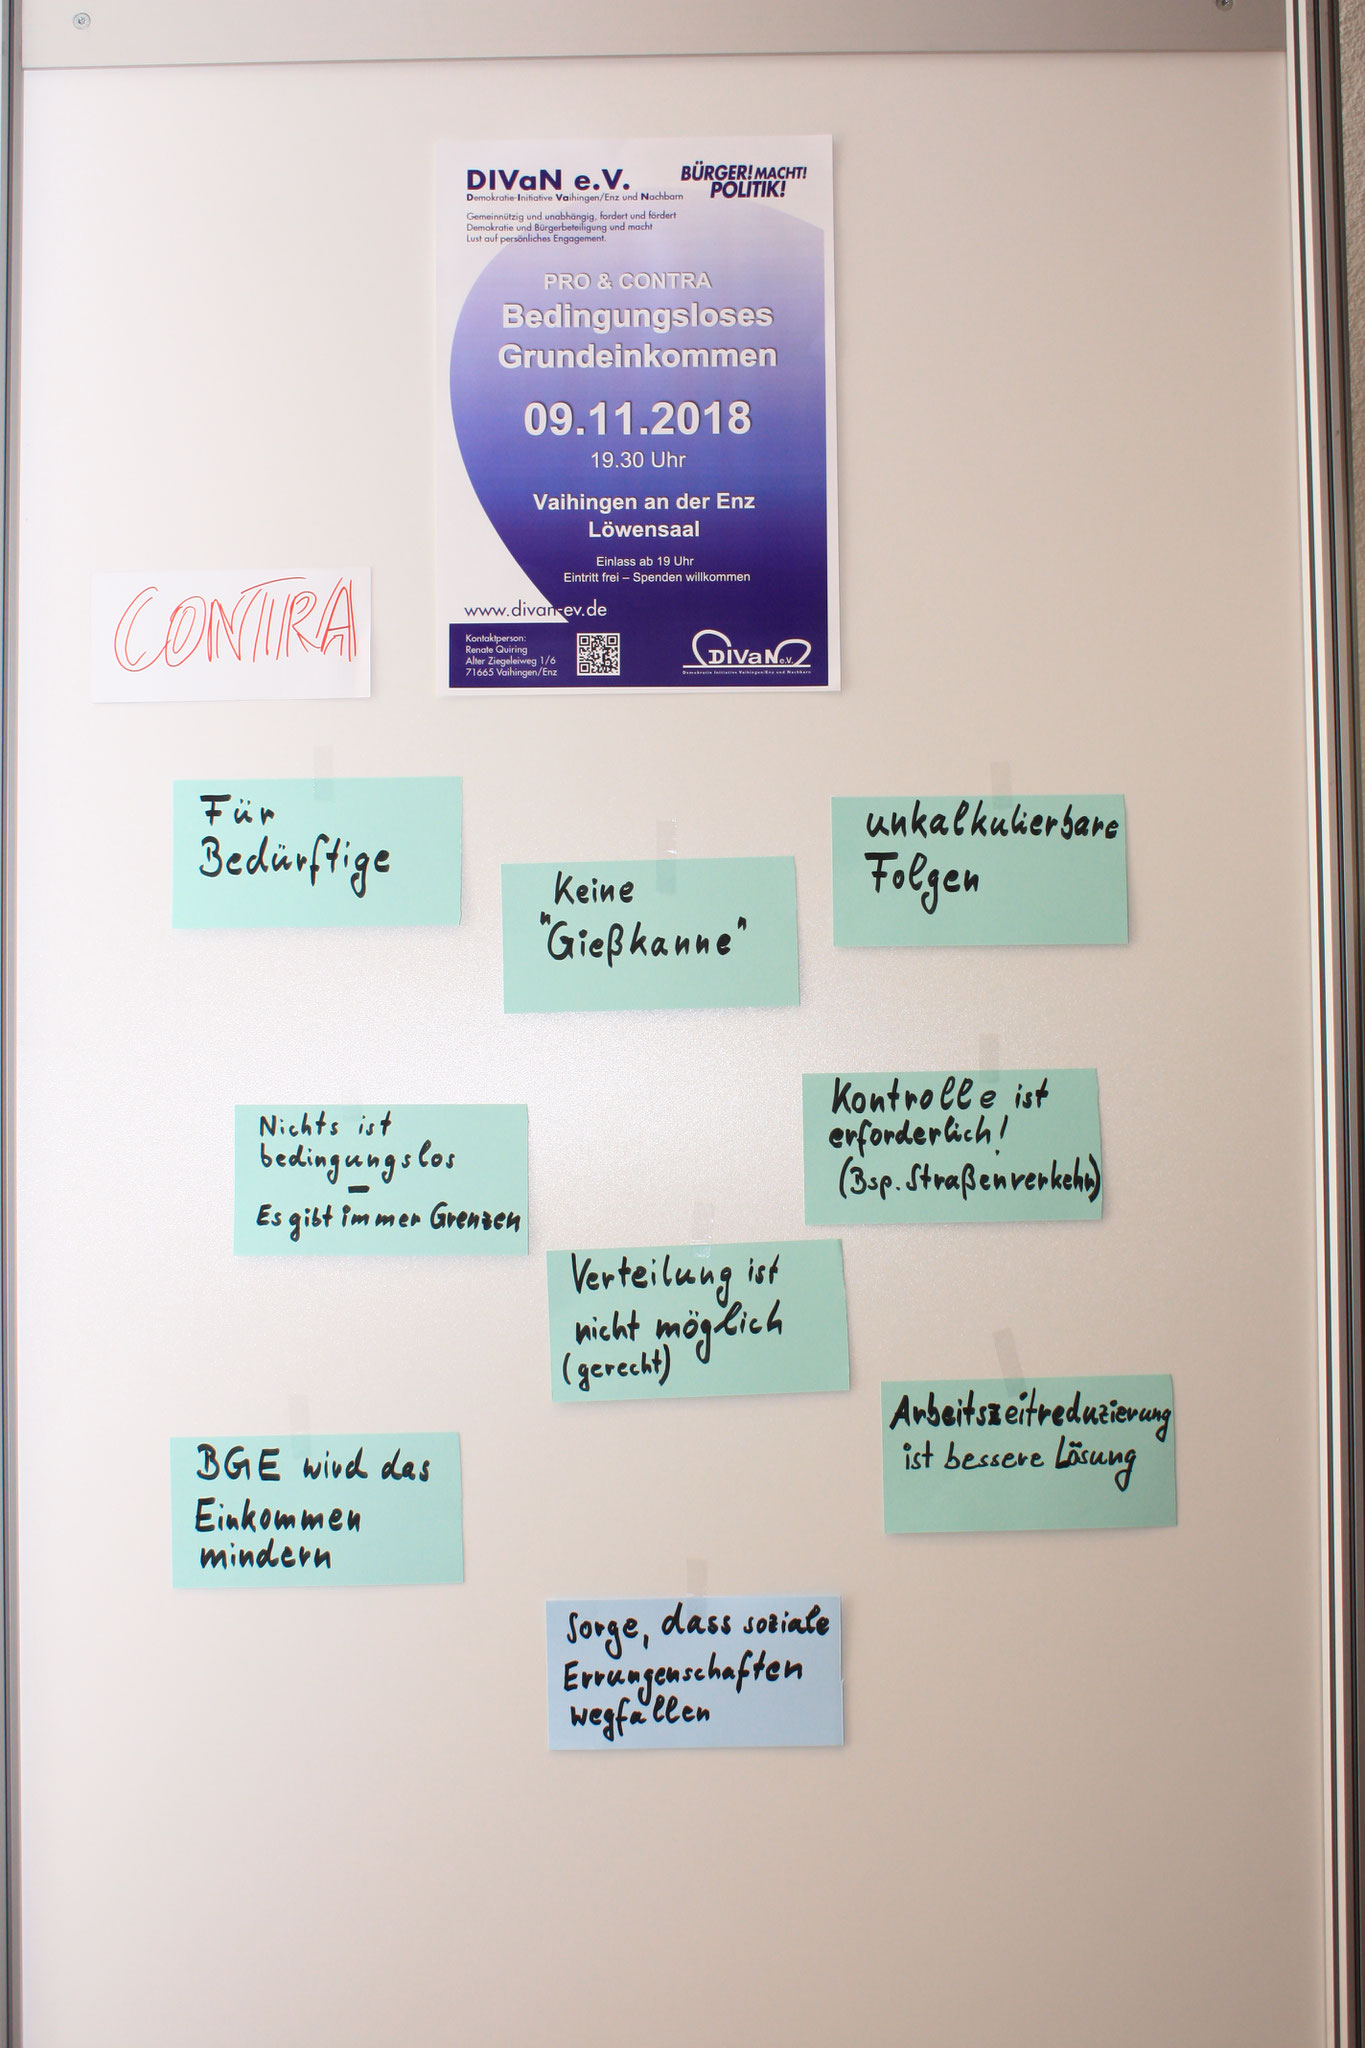 DIVaN e.V.
Demokratie-Initiative Vaihingen/Enz und Nachbarn
BÜRGER! MACHT!
POLITIK!
Gemeinnützig und unabhängig, fordert und fördert
Demokratie und Bürgerbeteiligung und macht
Lust auf persönliches Engagement.
PRO & CONTRA
Bedingungsloses
Grundeinkommen
09.11.2018
19.30 Uhr
Vaihingen an der Enz
Löwensaal
Einlass ab 19 Uhr
Eintritt frei – Spenden willkommen
www.divan-ev.de
Kontaktperson:
Renate Quiring
Alter Ziegeleiweg 1/6
71665 Vaihingen/Enz
DIVaN e.V.
Demokratie Initiative Vaihingen/Enz und Nachbarn
CONTRA
Für
Bedürftige
Keine
"Gießkanne"
unkalkulierbare
Folgen
Nichts ist
bedingungslos
–
Es gibt immer Grenzen
Kontrolle ist
erforderlich!
(Bsp. Straßenverkehr)
Verteilung ist
nicht möglich
(gerecht)
Arbeitszeitreduzierung
ist bessere Lösung
BGE wird das
Einkommen
mindern
Sorge, dass soziale
Errungenschaften
wegfallen